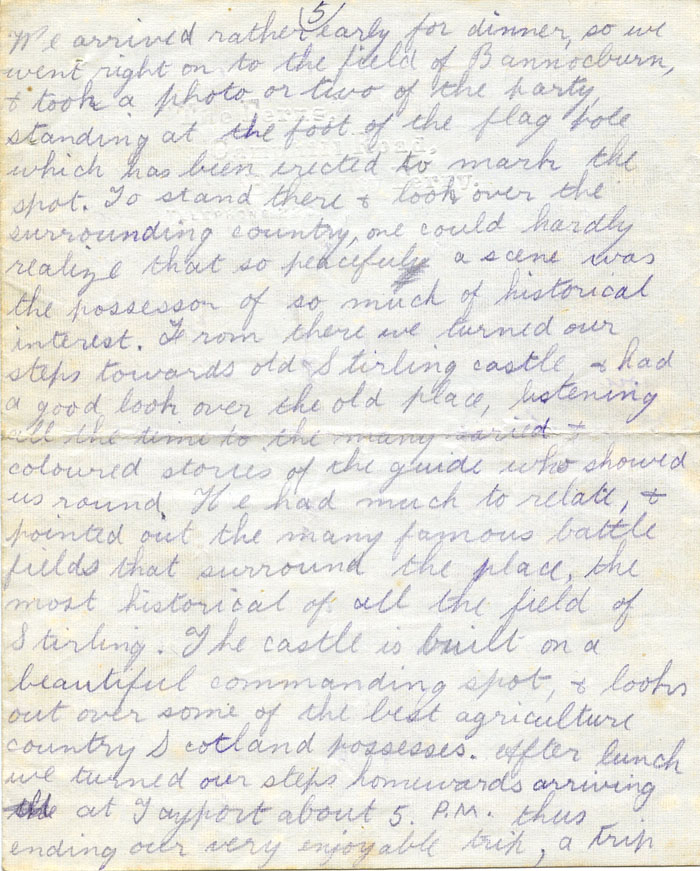 5
We arrived rather early for dinner, so we
went right on to the field of Bannocburn,
& took a photo or two of the party,
standing at the foot of the flag pole
which has been erected to mark the
spot. To stand there & look over the
surrounding country, one could hardly
realize that so peaceful a scene was
the possessor of so much of historical
interest. From there we turned our
steps towards old Stirling castle, & had
a good look over the old place, listening
all the time to the many varied &
coloured stories of the guide who showed
us round. He had much to relate, &
pointed out the many famous battle
fields that surround the place, the
most historical of all the field of
Stirling. The castle is built on a
beautiful commanding spot, & looks
out over some of the best agriculture
country Scotland possesses. After lunch
we turned our steps homewards arriving
at Tayport about 5. P.M. thus
ending our very enjoyable trip, a trip